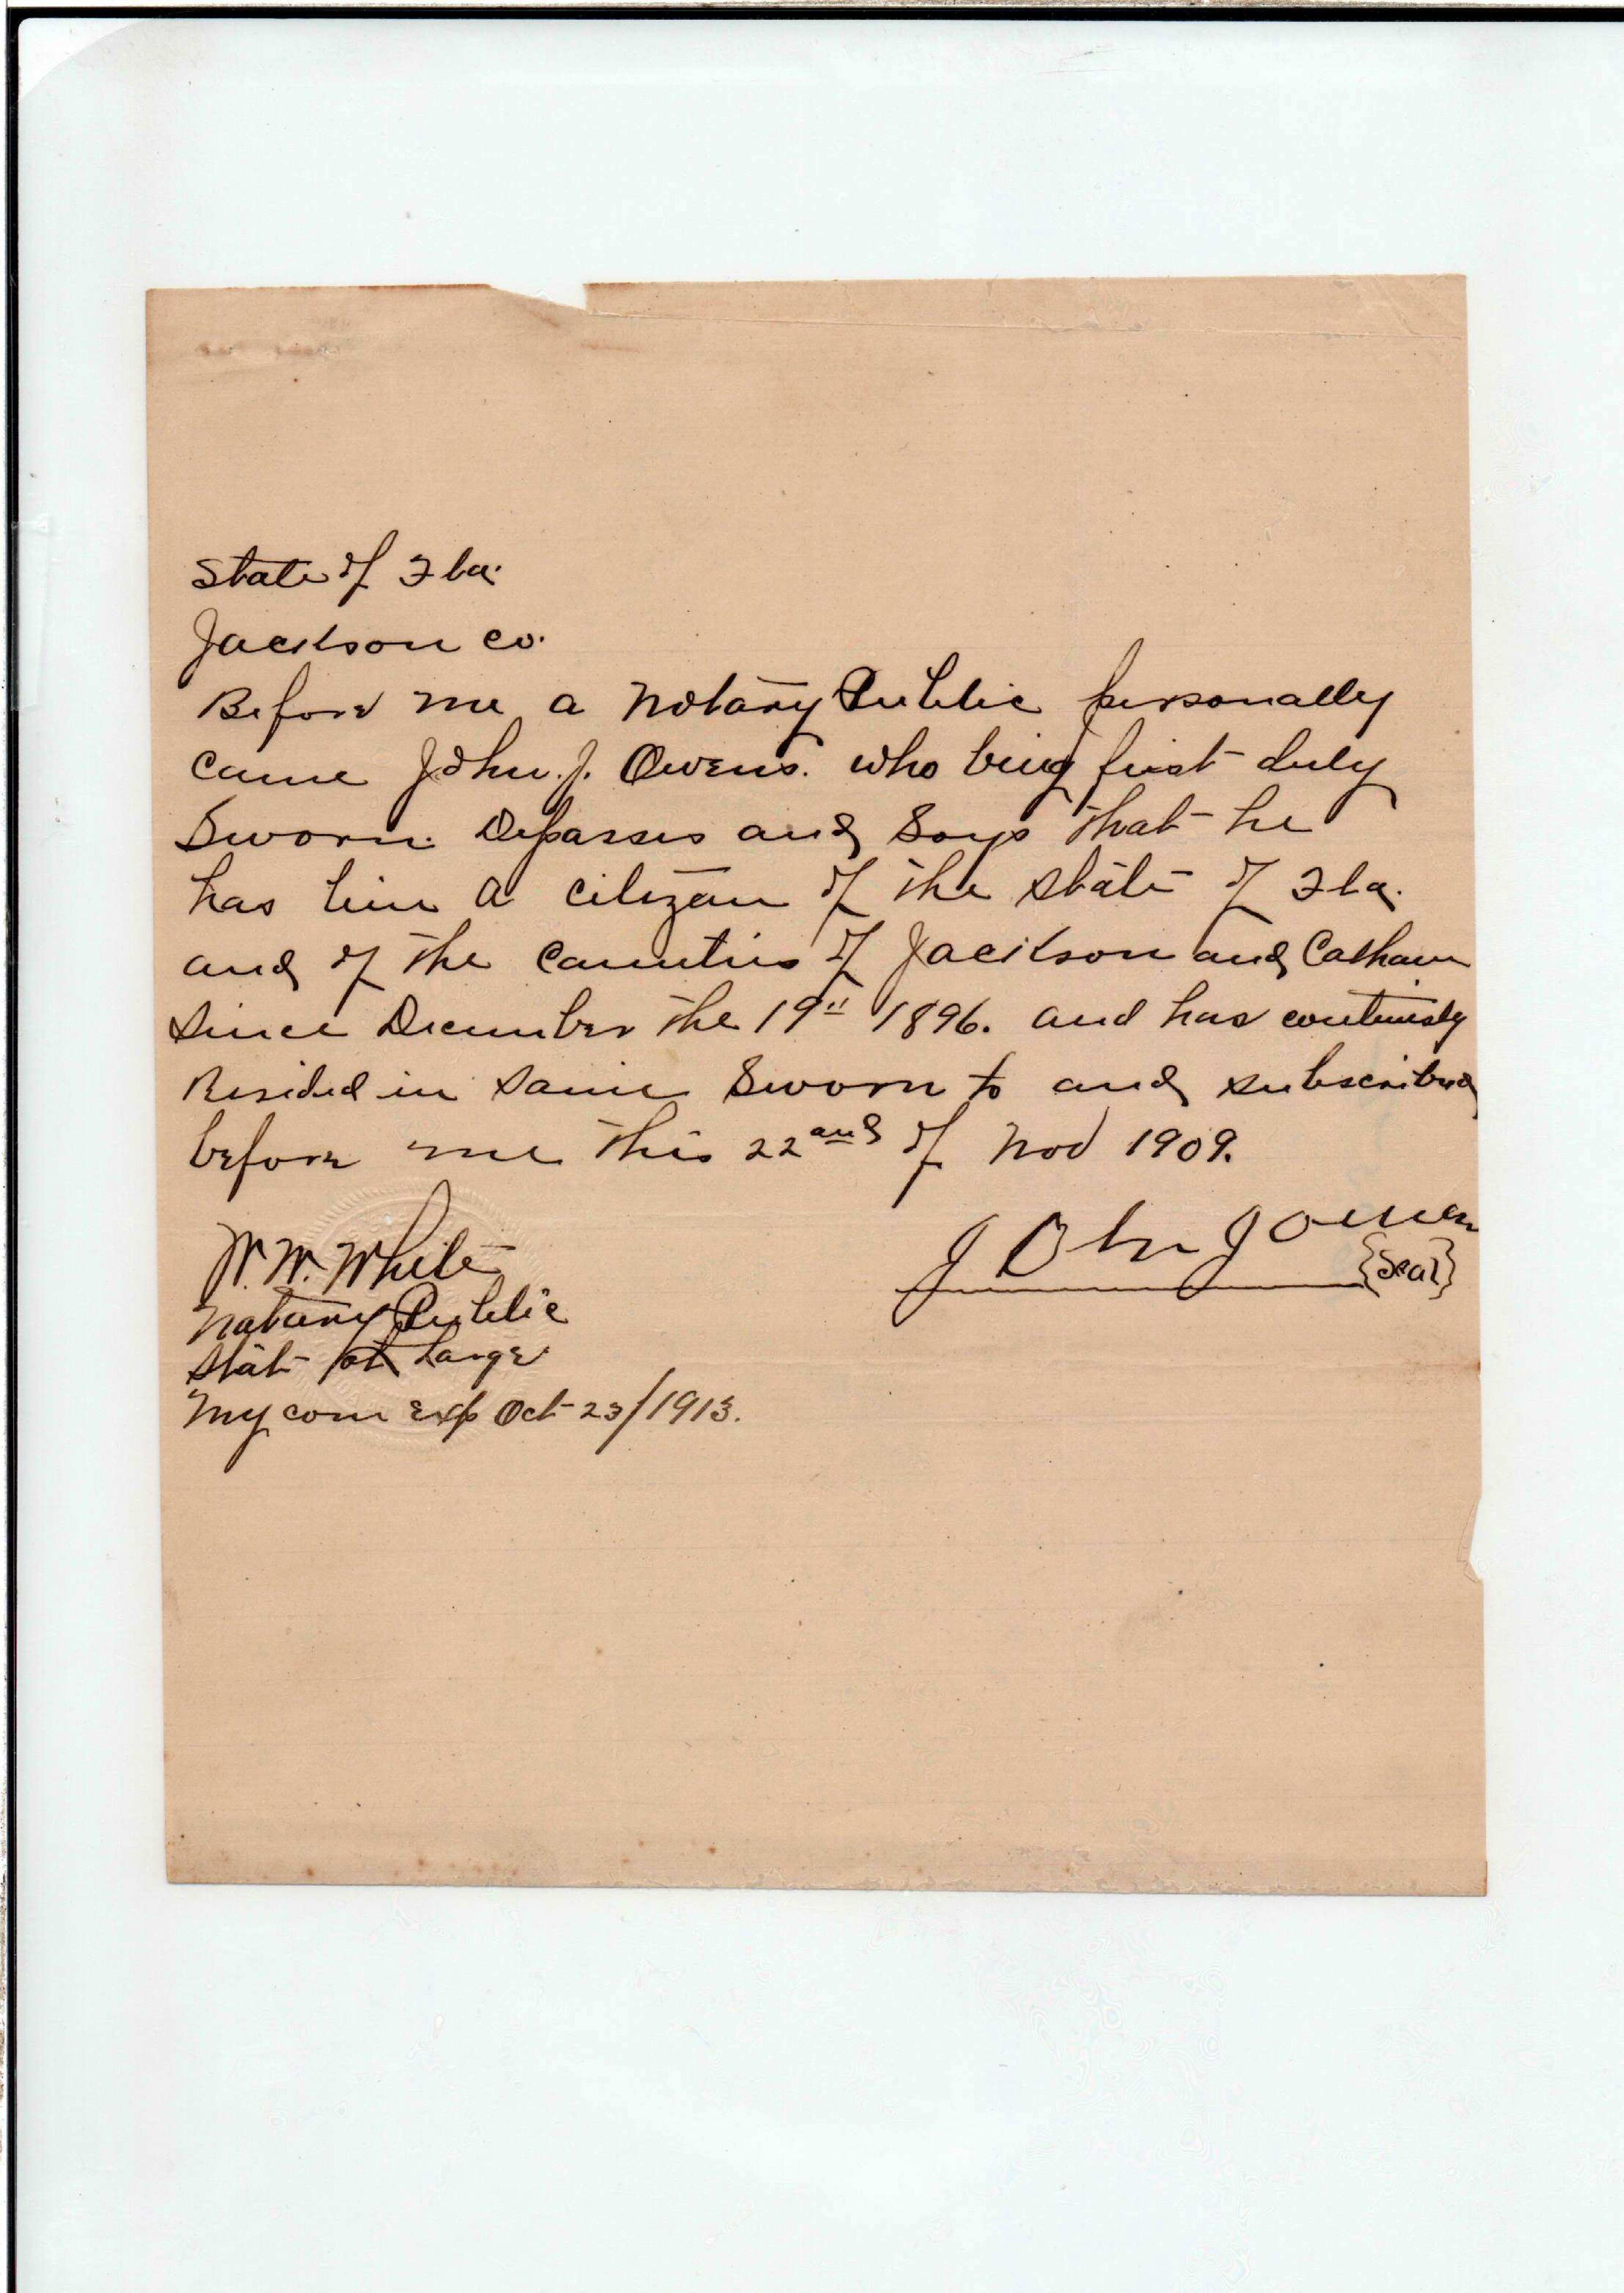 State of Fla.
Jackson Co.
Before me a Notary Public personally
came John. J. Owens. who being first duly
Sworn. Deposses and Says that he
has bin a citizan of the State of Fla.
and of the Counties of Jackson and Calhoun
Since December the 19th 1896. and has
Resided in Same Sworn to and subscribed
before me this 22and of Nov 1909.
John J Owen
{Seal}
W. W. White
Notary Public
State at Large
My com exp Oct 23/1913.